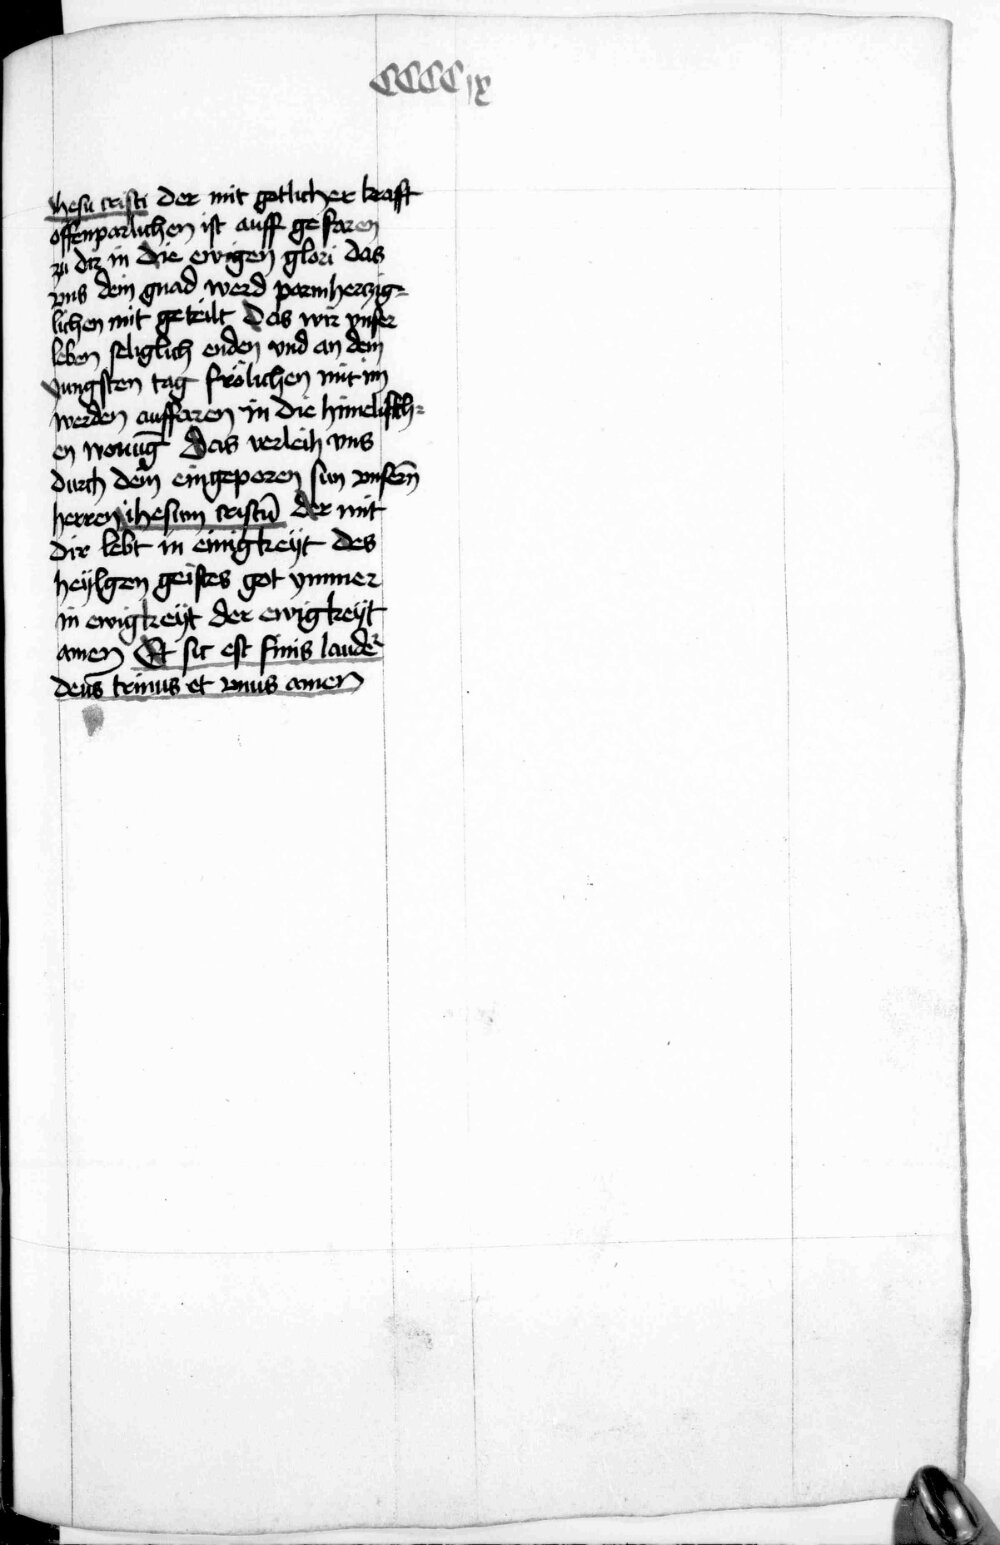 CCCCix
Ihesu cristi der mit gotlicher krafft
offenparlichen ist auff gefaren
zu dir in die ewigen glori das
vns dein gnad werd parmherczig=
lichen mit geteilt Das wir vnser
leben seliglich enden vnd an dem
Jungsten tag frölichen mit im
werden auffaren in die himelisch=
en wonūg Das verleih vns
durch dein eingeporen sun vnsern̄
herren ihesum cristū der mit
dir lebt in einigkeÿt des
heÿlgen geistes got ymmer
in ewigkeÿt der ewigkeÿt
amen Et sit est finis laudet᷑
deus trinus et vnus amen